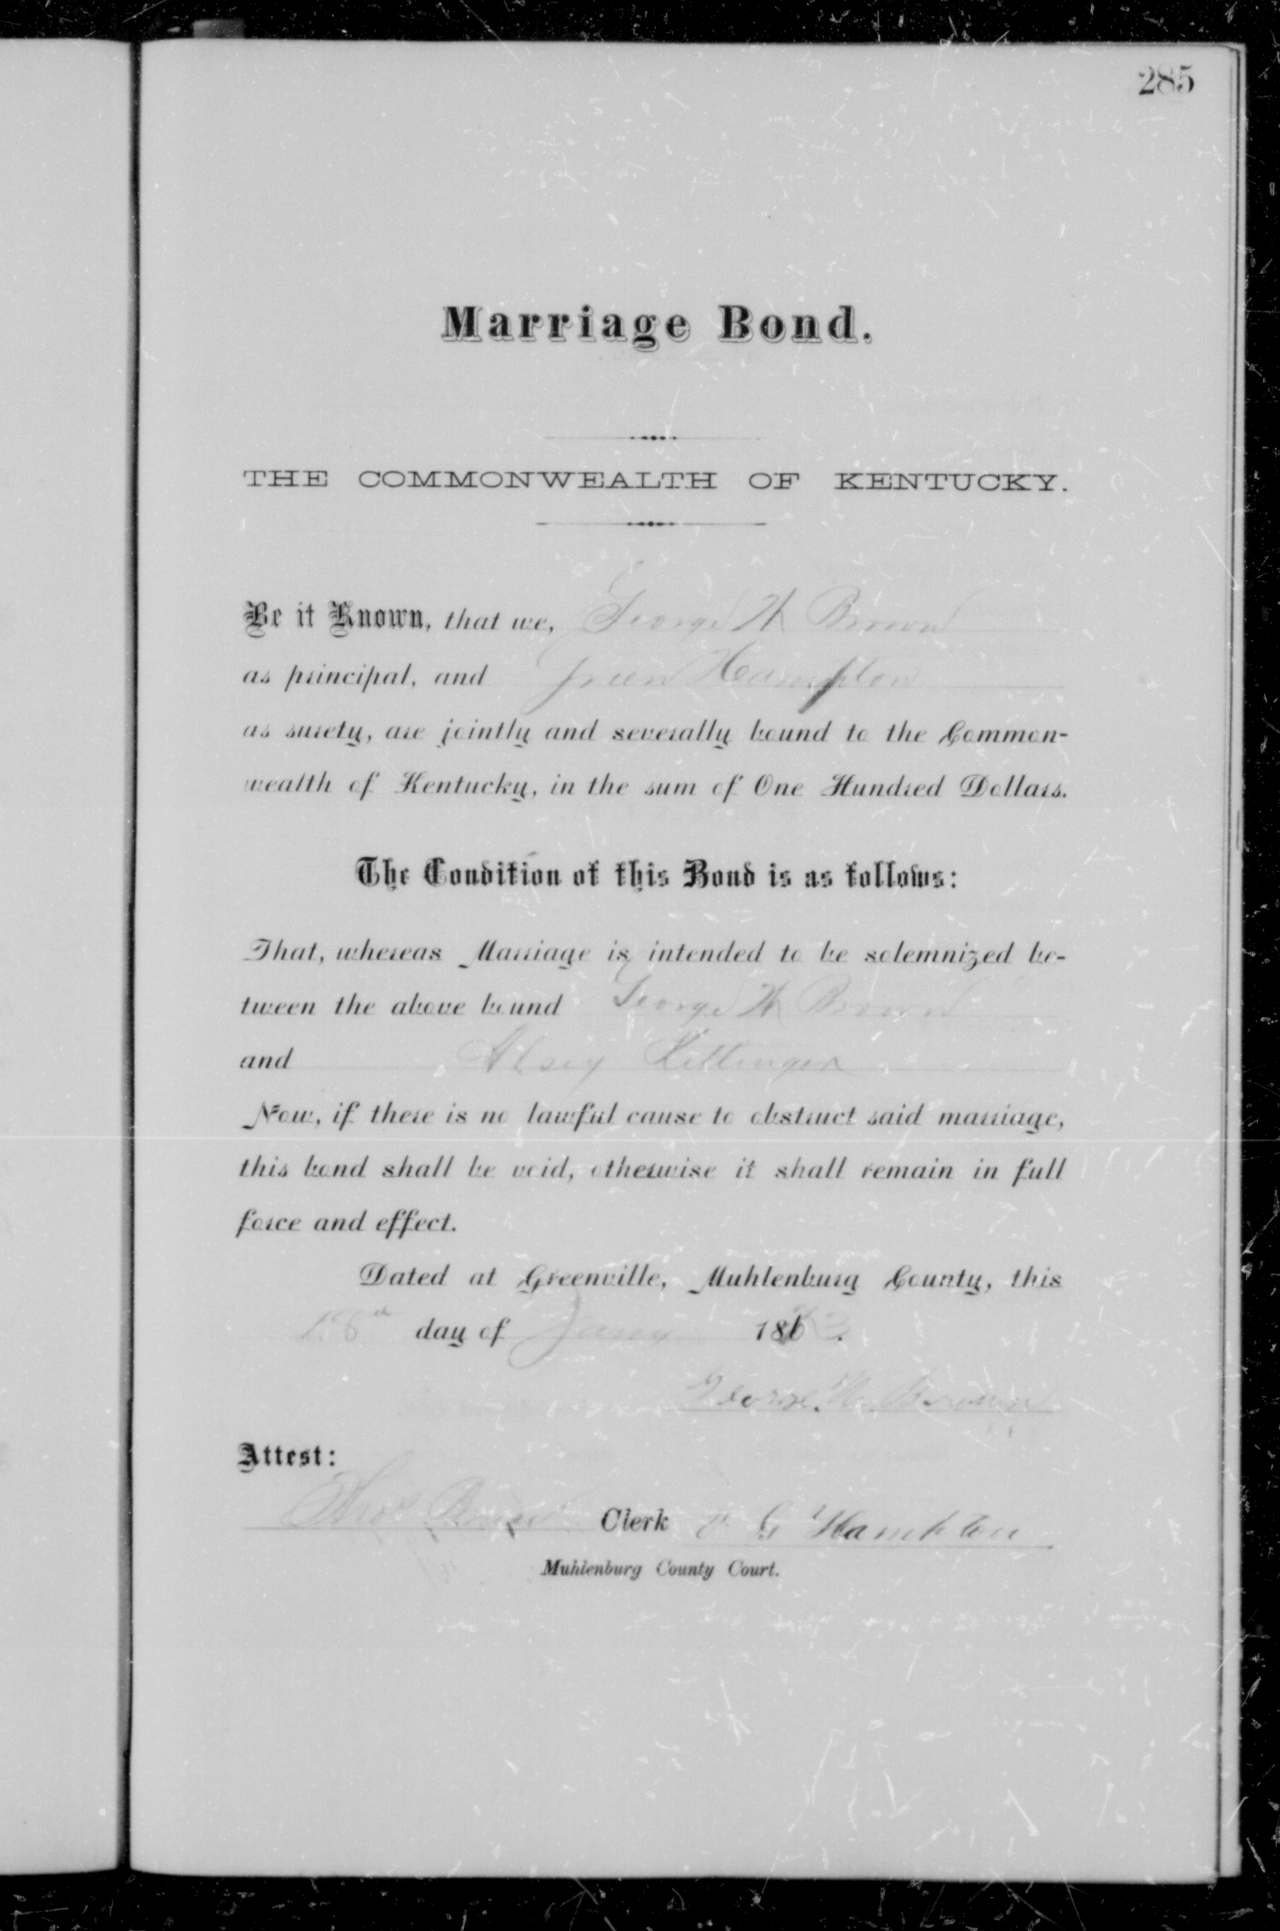 285
Marriage Bond.
THE COMMONWEALTH OF KENTUCKY.
Be it Known, that we, George W Brown
as principal, and Green Hampton
as surety, are jointly and severally bound to the Common-
wealth of Kentucky, in the sum of One Hundred Dollars.
The Condition of this Bond is as follows:
That, whereas Marriage is intended to be solemnized be-
tween the above bound George W Brown
and
Now, if there is no lawful cause to obstruct said marriage,
this bond shall be void, otherwise it shall remain in full
force and effect.
Dated at Greenville, Muhlenburg County, this
18 day of Jany 18
George W Brown
Attest:
Clerk G Hampton
Muhlenburg County Court.